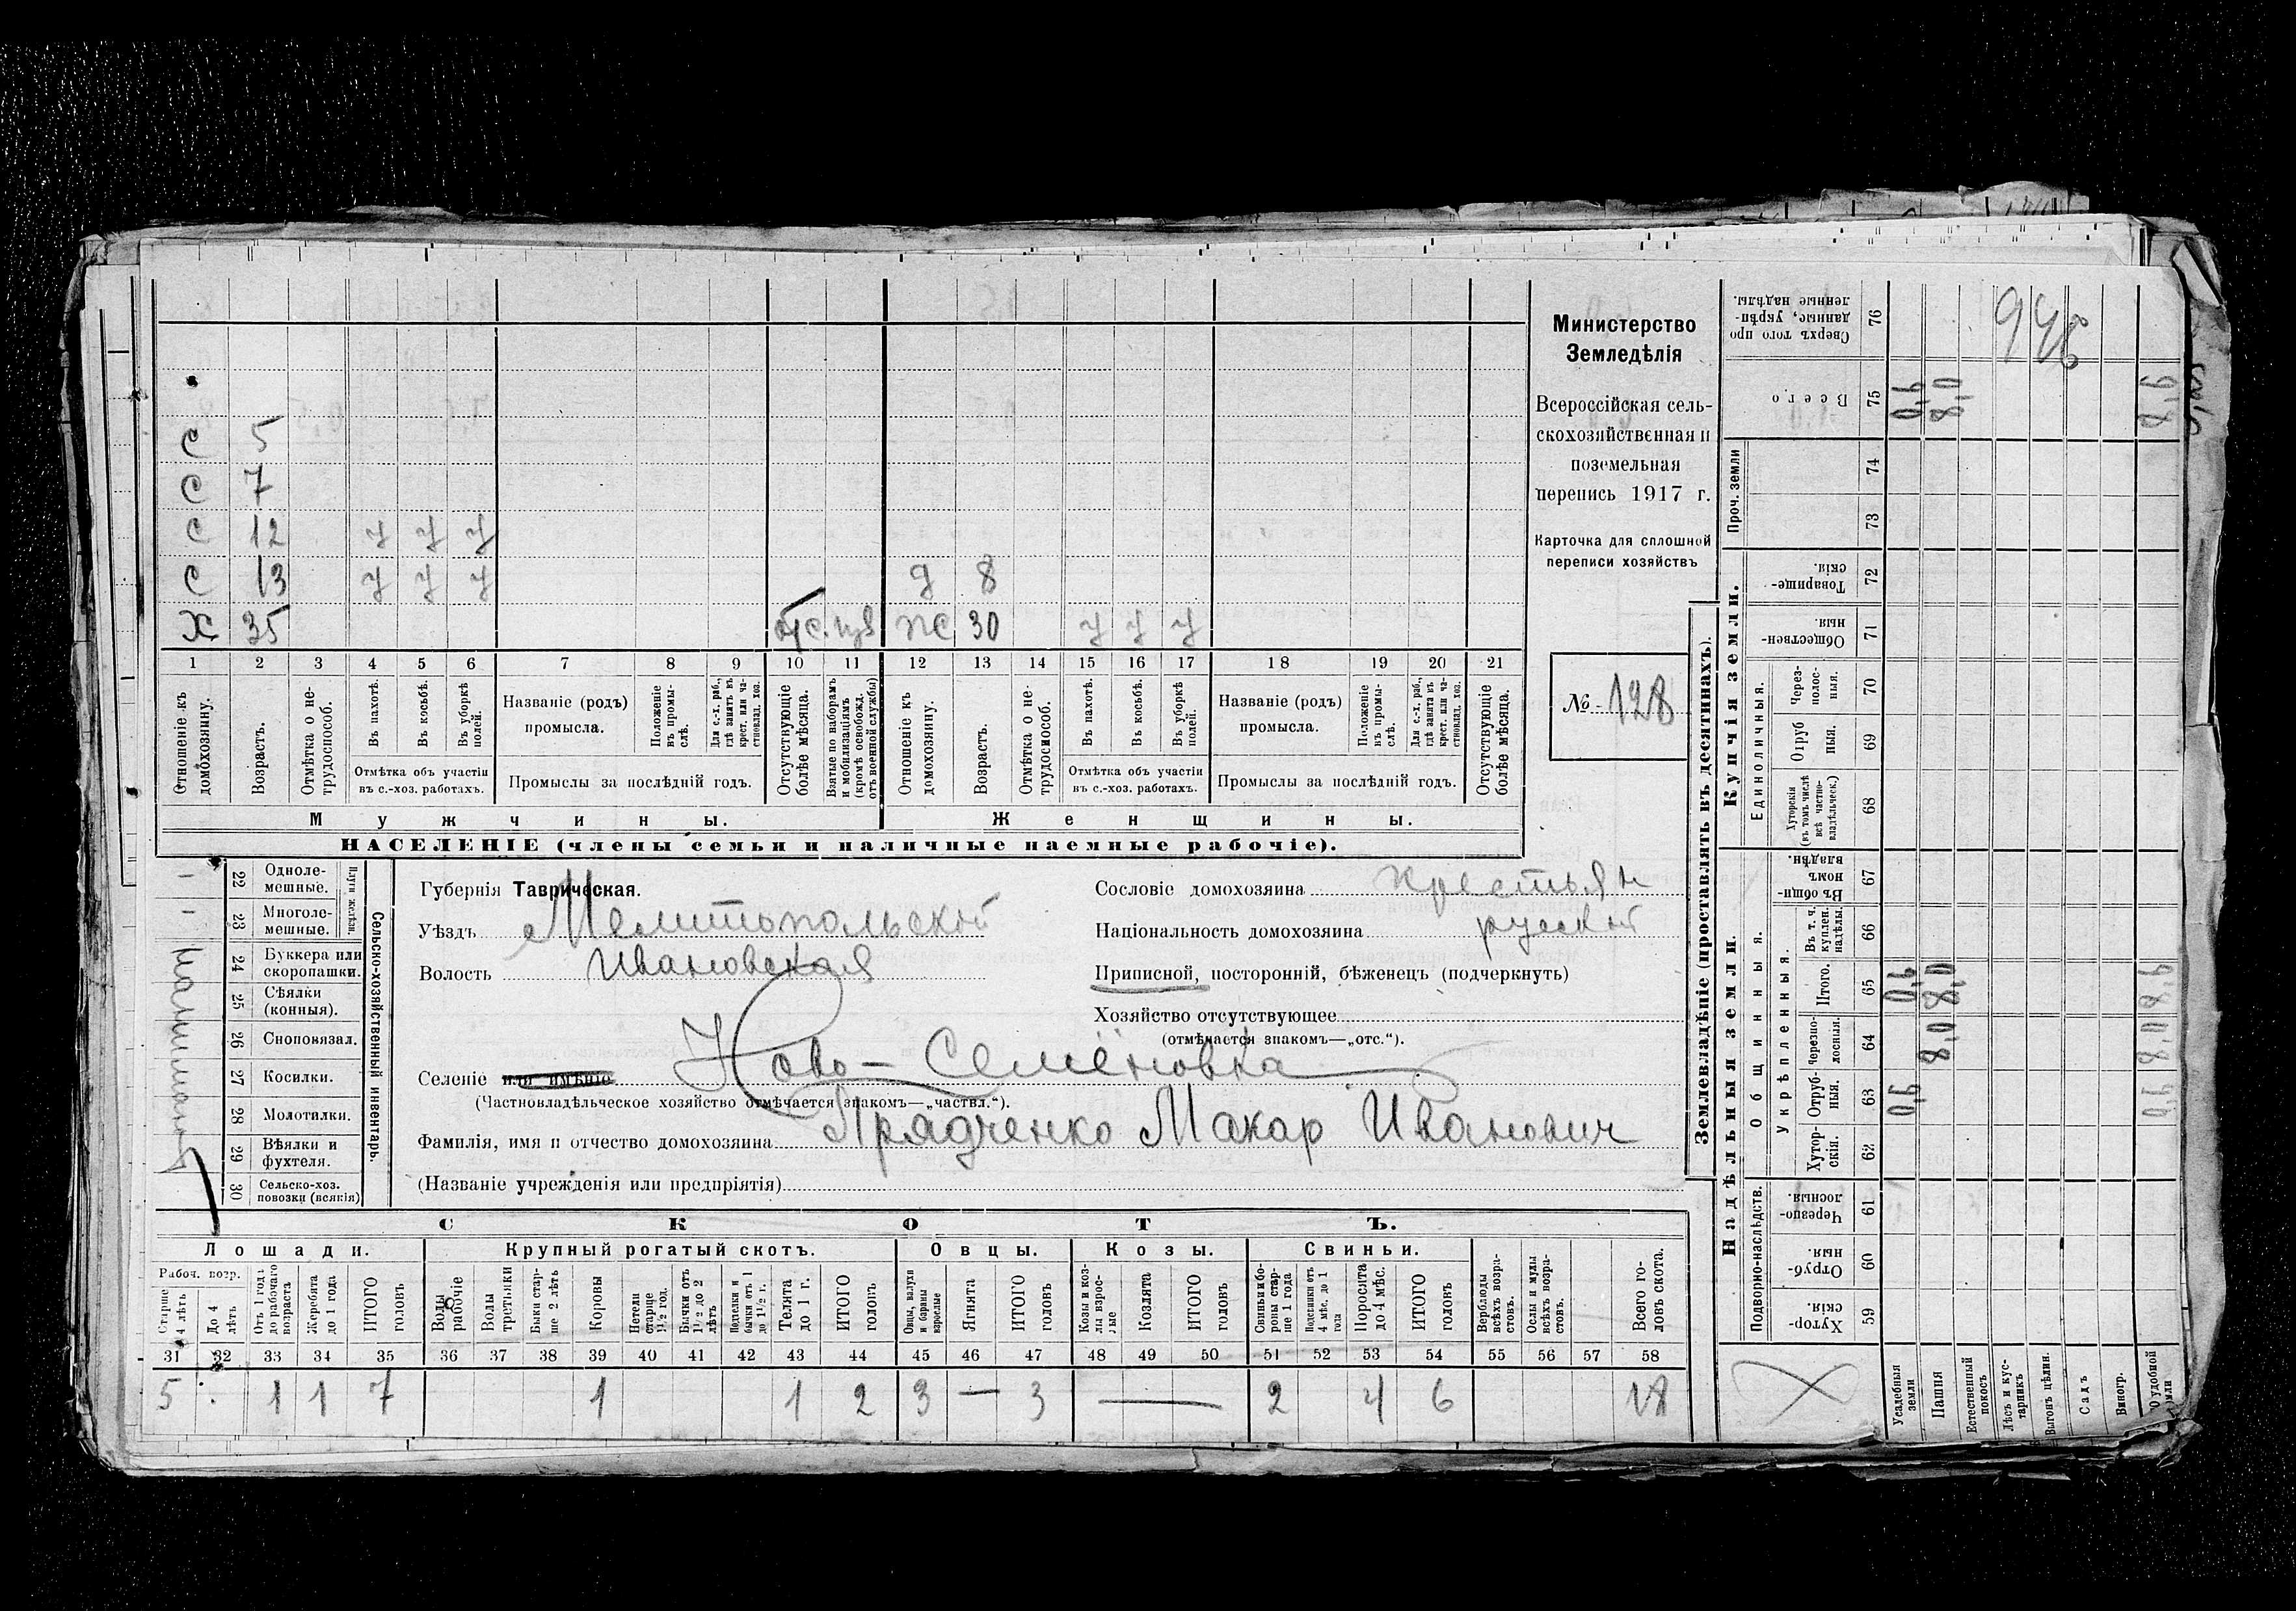 С 5
С 7
С 12 У У У
С 13 У У У д 8
Х 35 отс. жс 30 У У У
1 2 3 4 5 6 7 8 9 10 11 12 13 14 15 16 17 18 19 20 21
Отношеніе къ домохозяину.
Возрастъ.
Отмѣтка о нетрудоспособ.
Въ пахотѣ.
Въ косьбѣ.
Въ уборкѣ полей.
Отмѣтка объ участіи
въ с.-хоз. работахъ.
Названіе (родъ)
промысла.
Положеніе въ промыслѣ.
Для с.-х. раб., гдѣ занятъ въ крест. или частновлад. хоз.
Промыслы за послѣдній годъ.
Отсутствующіе болѣе мѣсяца.
Взятые по наборамъ и мобилизаціямъ (кромѣ освобожд. отъ военной службы)
Отношеніе къ домохозяину.
Возрастъ.
Отмѣтка о нетрудоспособ.
Въ пахотѣ.
Въ косьбѣ.
Въ уборкѣ полей.
Отмѣтка объ участіи
въ с.-хоз. работахъ.
Названіе (родъ)
промысла.
Положеніе въ промыслѣ.
Для с.-х. раб., гдѣ занята въ крест. или частновлад. хоз.
Промыслы за послѣдній годъ.
Отсутствующіе болѣе мѣсяца.
Мужчины. Женщины.
НАСЕЛЕНІЕ (члены семьи и наличные наемные рабочіе).
Министерство
Земледѣлія
Всероссійская сель-
скохозяйственная и
поземельная
перепись 1917 г.
Карточка для сплошной
переписи хозяйствъ
№ 128
Сельско-хозяйственный инвентарь.
Плуги желѣзн.
22 Однолемешные.
23 Многолемешные.
24 Буккера или скоропашки.
25 Сѣялки (конныя).
26 Сноповязал.
27 Косилки.
28 Молотилки.
29 Вѣялки и фухтеля.
30 Сельско-хоз. повозки (всякія)
Губернія Таврическая.
Уѣздъ Мелитопольской
Волость Ивановская
Селеніе или имѣніе Ново-Семёновка
(Частновладѣльческое хозяйство отмѣчается знакомъ—„частвл.“).
Фамилія, имя и отчество домохозяина Прядченко Макар Иванович
(Названіе учрежденія или предпріятія)
Сословіе домохозяина крестьян
Національность домохозяина русской
Приписной, посторонній, бѣженецъ (подчеркнуть)
Хозяйство отсутствующее
(отмѣчается знакомъ—„отс.“).
СКОТЪ.
Лошади. Крупный рогатый скотъ. Овцы. Козы. Свиньи.
Рабоч. возр.
Старше 4 лѣтъ
До 4 лѣтъ
Отъ 1 года до рабочаго возраста
Жеребята до 1 года
ИТОГО головъ
Волы рабочіе
Волы третьяки
Быки старше 2 лѣтъ
Коровы
Нетели старше 1½ год.
Бычки отъ 1½ до 2 лѣтъ
Подтелки и бычки отъ 1 до 1½ г.
Телята до 1 г.
ИТОГО головъ
Овцы, валухи и бараны взрослые
Ягнята
ИТОГО головъ
Козы и козлы взрослые
Козлята
ИТОГО головъ
Свиньи и боровы старше 1 года
Подсвинки отъ 4 мѣс. до 1 года
Поросята до 4 мѣс.
ИТОГО головъ
Верблюды всѣхъ возрастовъ.
Ослы и мулы всѣхъ возрастовъ.
Всего головъ скота.
31 32 33 34 35 36 37 38 39 40 41 42 43 44 45 46 47 48 49 50 51 52 53 54 55 56 57 58
5 1 1 7 1 1 2 3 — 3 — 2 4 6 18
Землевладѣніе (проставлять въ десятинахъ).
Надѣльныя земли. Купчія земли. Проч. земли
Подворно-наслѣдств.
Общинныя.
Укрѣпленныя.
Единоличныя.
Хуторскія 59
Отрубныя 60
Черезполосныя. 61
Хуторскія. 62
Отрубныя. 63
Черезполосныя. 64
Итого. 65
Въ т. ч. куплен. надѣлы. 66
Въ общин. владѣн. 67
Хуторскія (въ томъ числѣ всѣ частновладѣльческ.) 68
Отрубныя. 69
Черезполосныя. 70
Общественныя. 71
Товарищескія. 72
73
74
Всего 75
Сверхъ того проданные, укрѣпленные надѣлы. 76
Усадебныя земли
Пашня
Естественный покосъ
Лѣсъ и кустарникъ
Выгонъ цѣлин.
Садъ
Виногр.
удобной земли
0,6 8,0
0,6 8,0
8,0
948